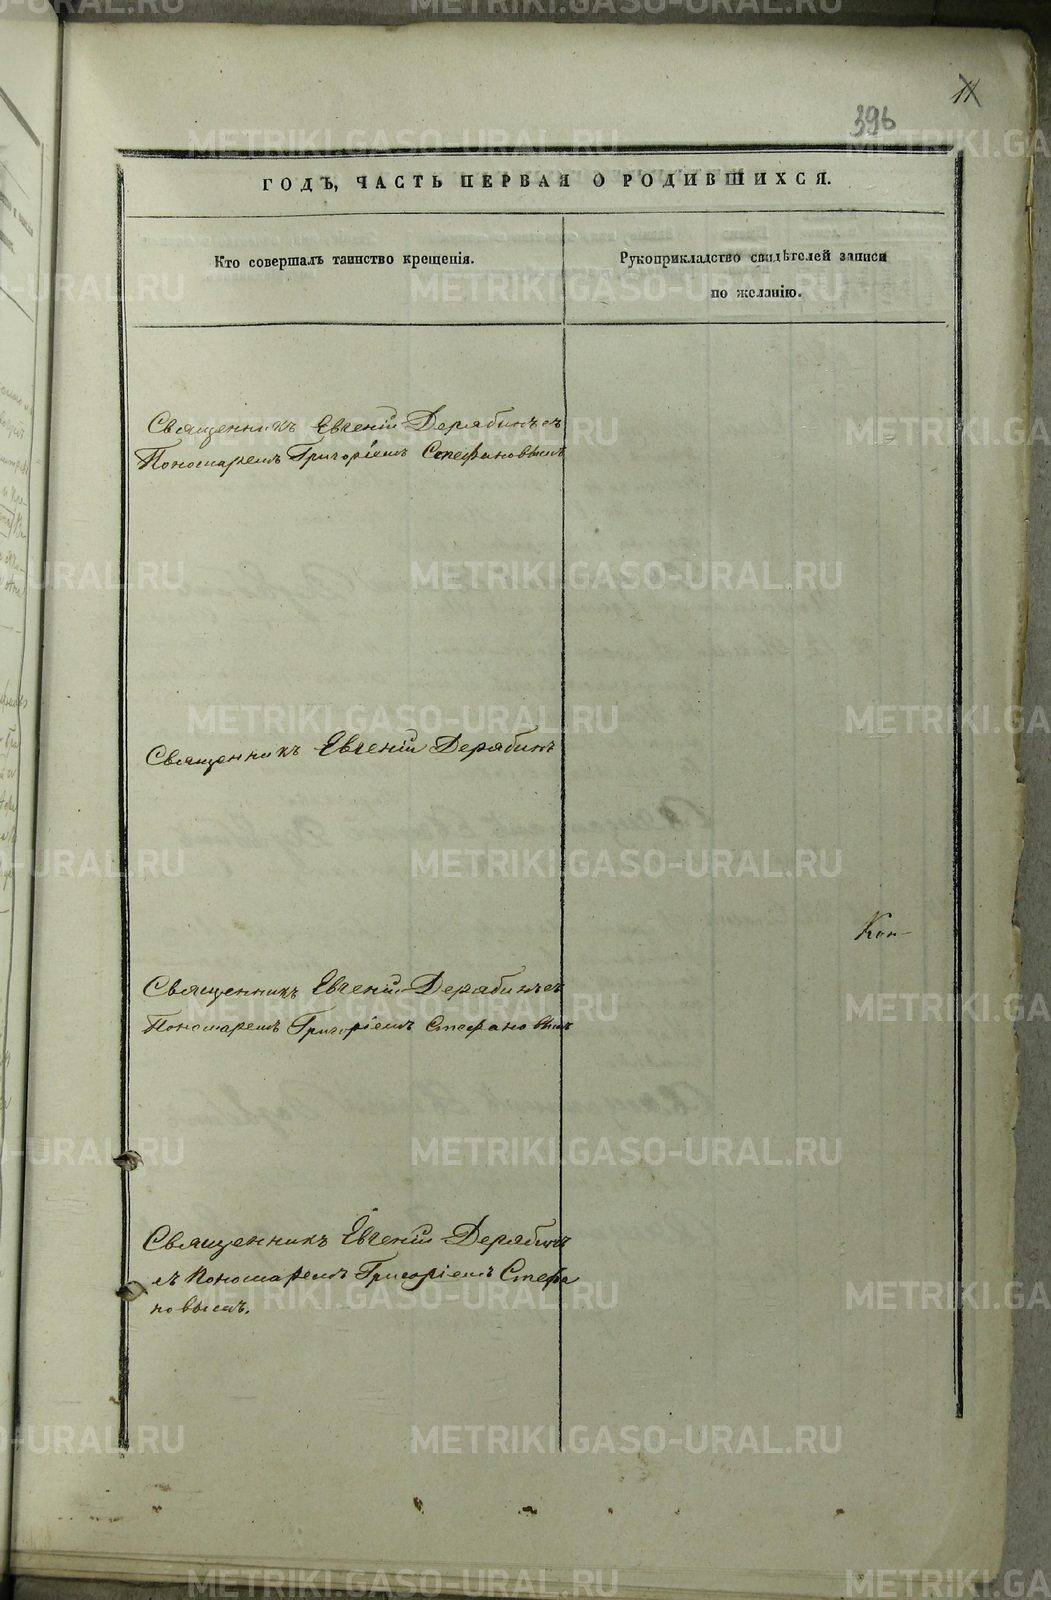 11
396
ГОДЪ, ЧАСТЬ ПЕРВАЯ О РОДИВШИХСЯ.
Кто совершалъ таинство крещенія.
Рукоприкладство свидѣтелей записи
по желанію.
Священникъ Евгеній Дерябинъ съ
Пономаремъ Григоріемъ Стефановымъ
Священникъ Евгеній Дерябинъ
Кон-
Священникъ Евгеній Дерябинъ съ
Пономаремъ Григоріемъ Стефановымъ
Священникъ Евгеній Дерябинъ
съ Пономаремъ Григоріемъ Стефа
новымъ.
METRIKI.GASO-URAL.RU